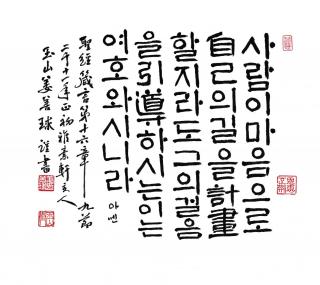 사람이마음으로
自己의길을計畫
할지라도그의걸음
을引導하시는이는
여호와시니라
아멘
聖經箴言第十六章九節
玉山姜善球謹書